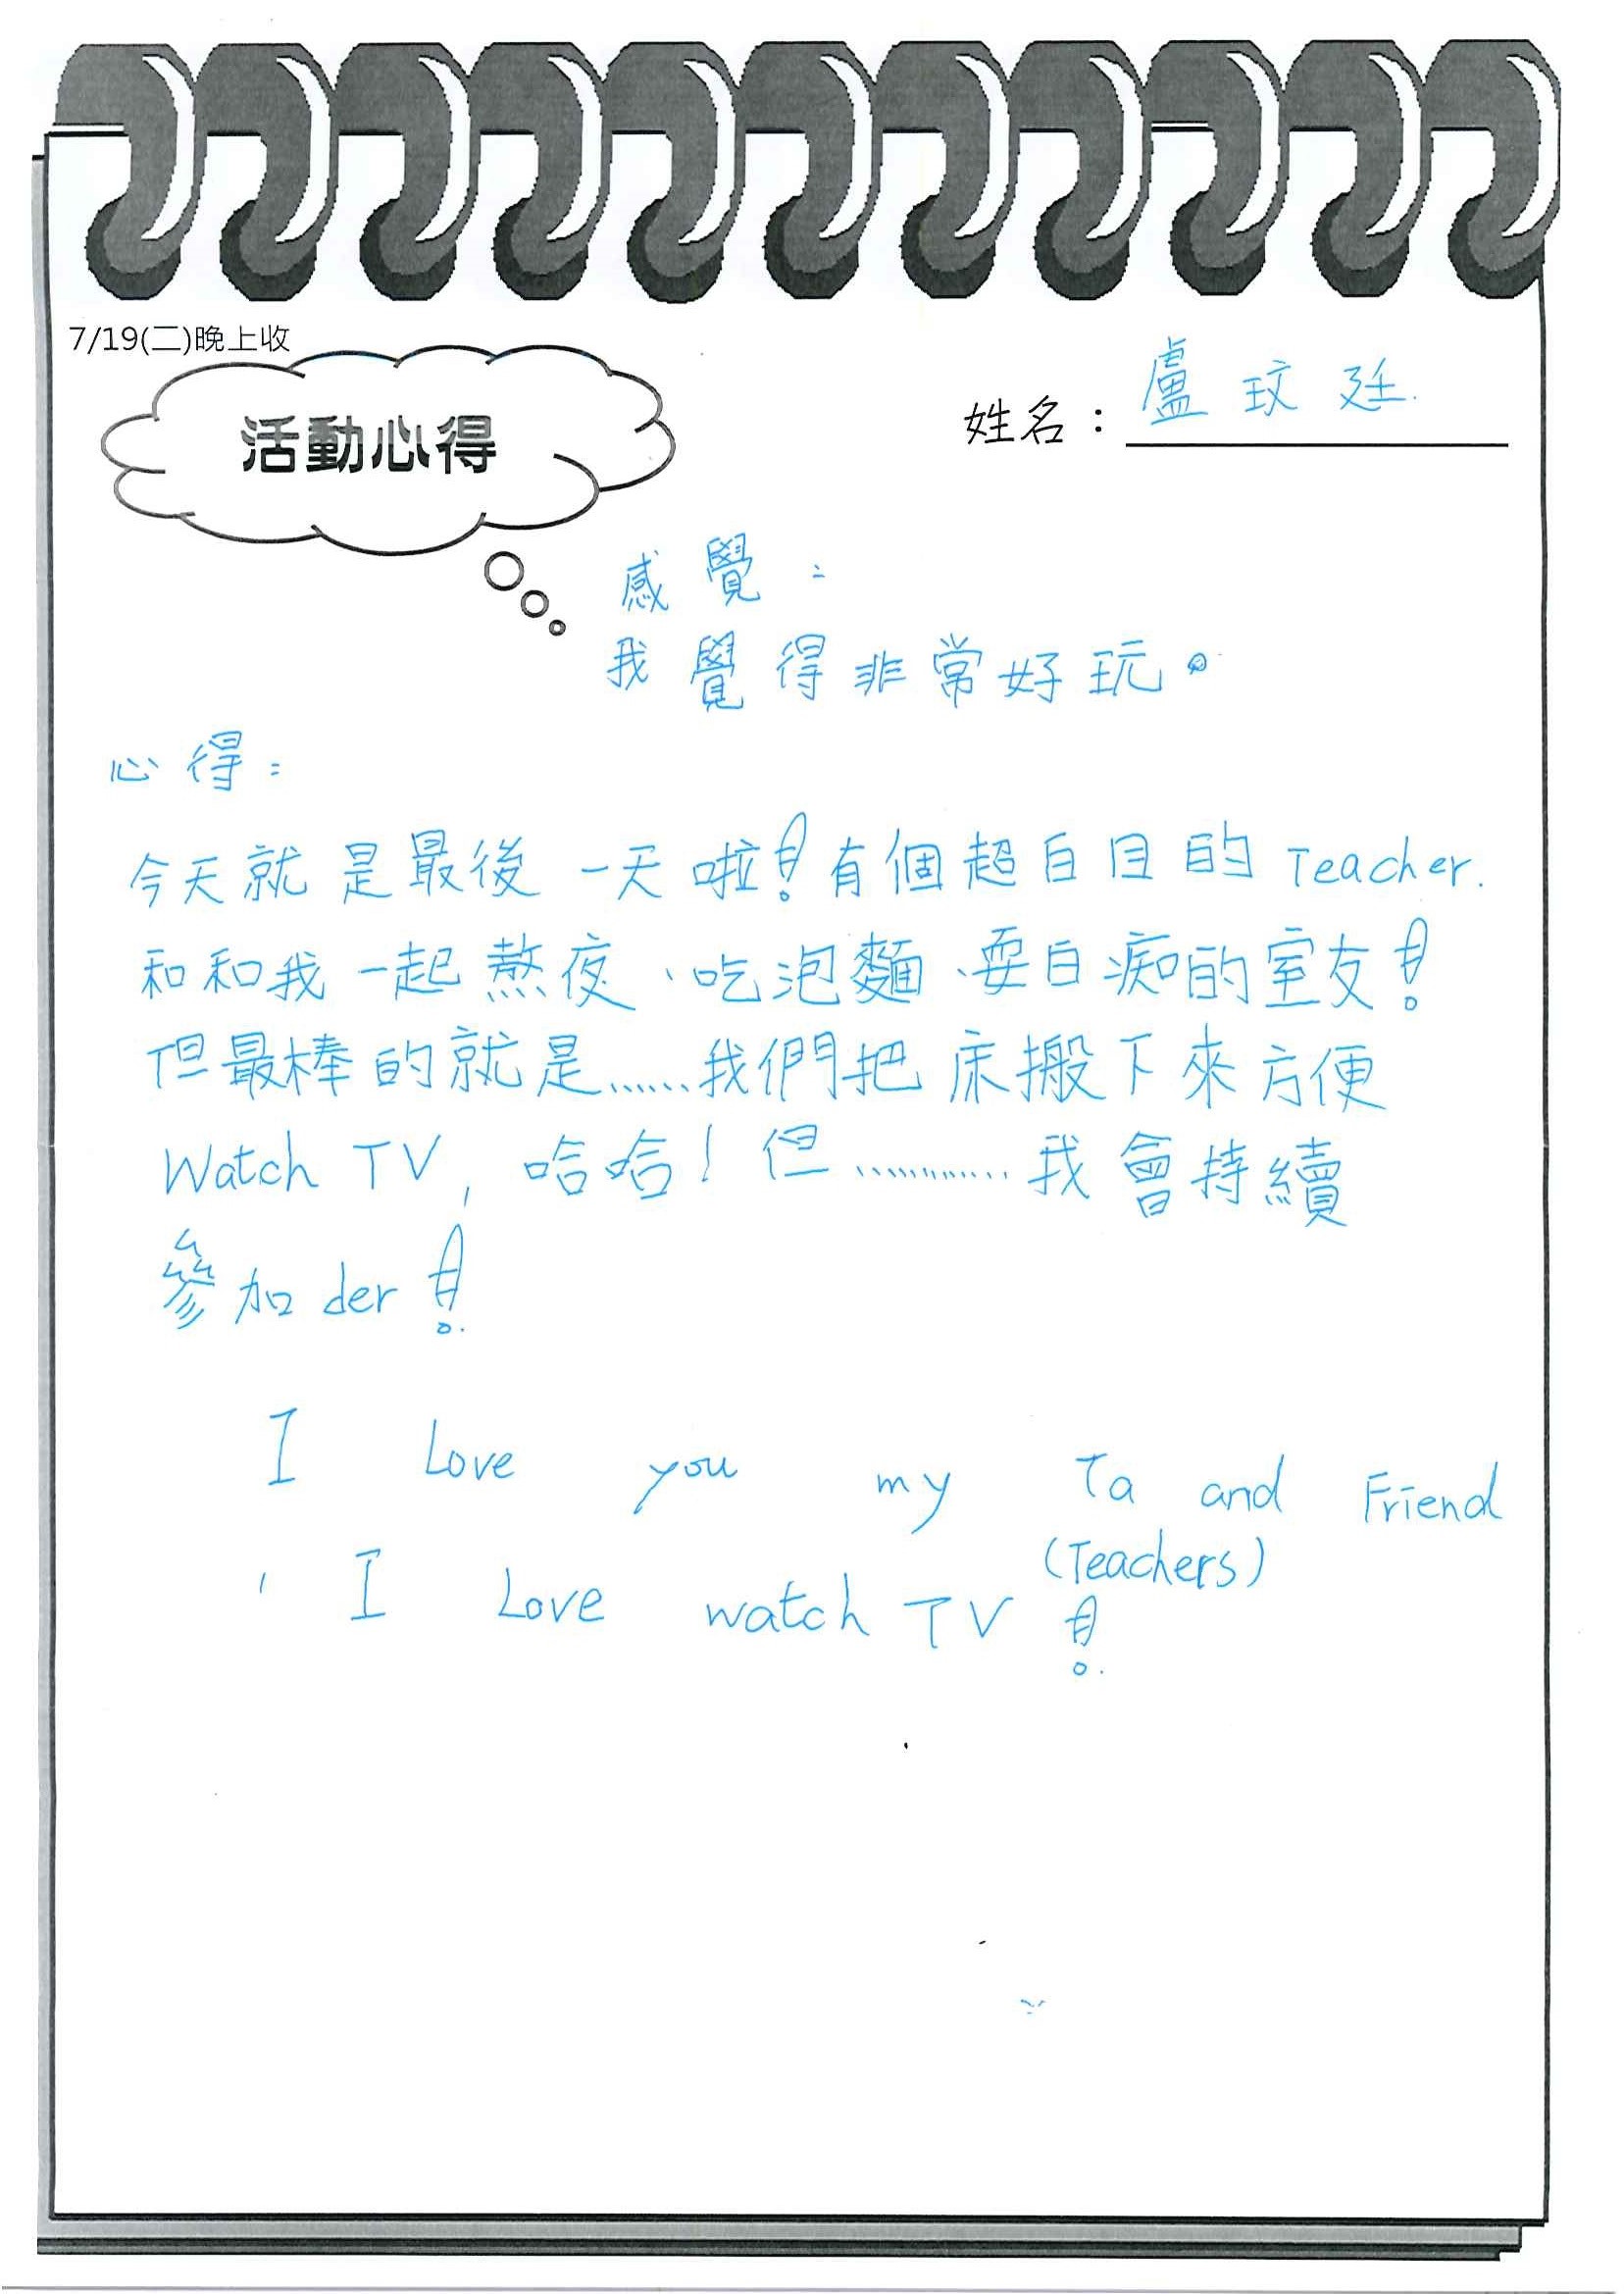 7/19(二)晚上收
活動心得
姓名：盧玟廷.
感覺：
我覺得非常好玩。
心得：
今天就是最後一天啦!有個超白目的Teacher.
和和我一起熬夜、吃泡麵、耍白痴的室友!
但最棒的就是......我們把床搬下來方便
Watch TV, 哈哈!但............我會持續
參加der!
I Love you my Ta and Friend
(Teachers)
, I Love watch TV!